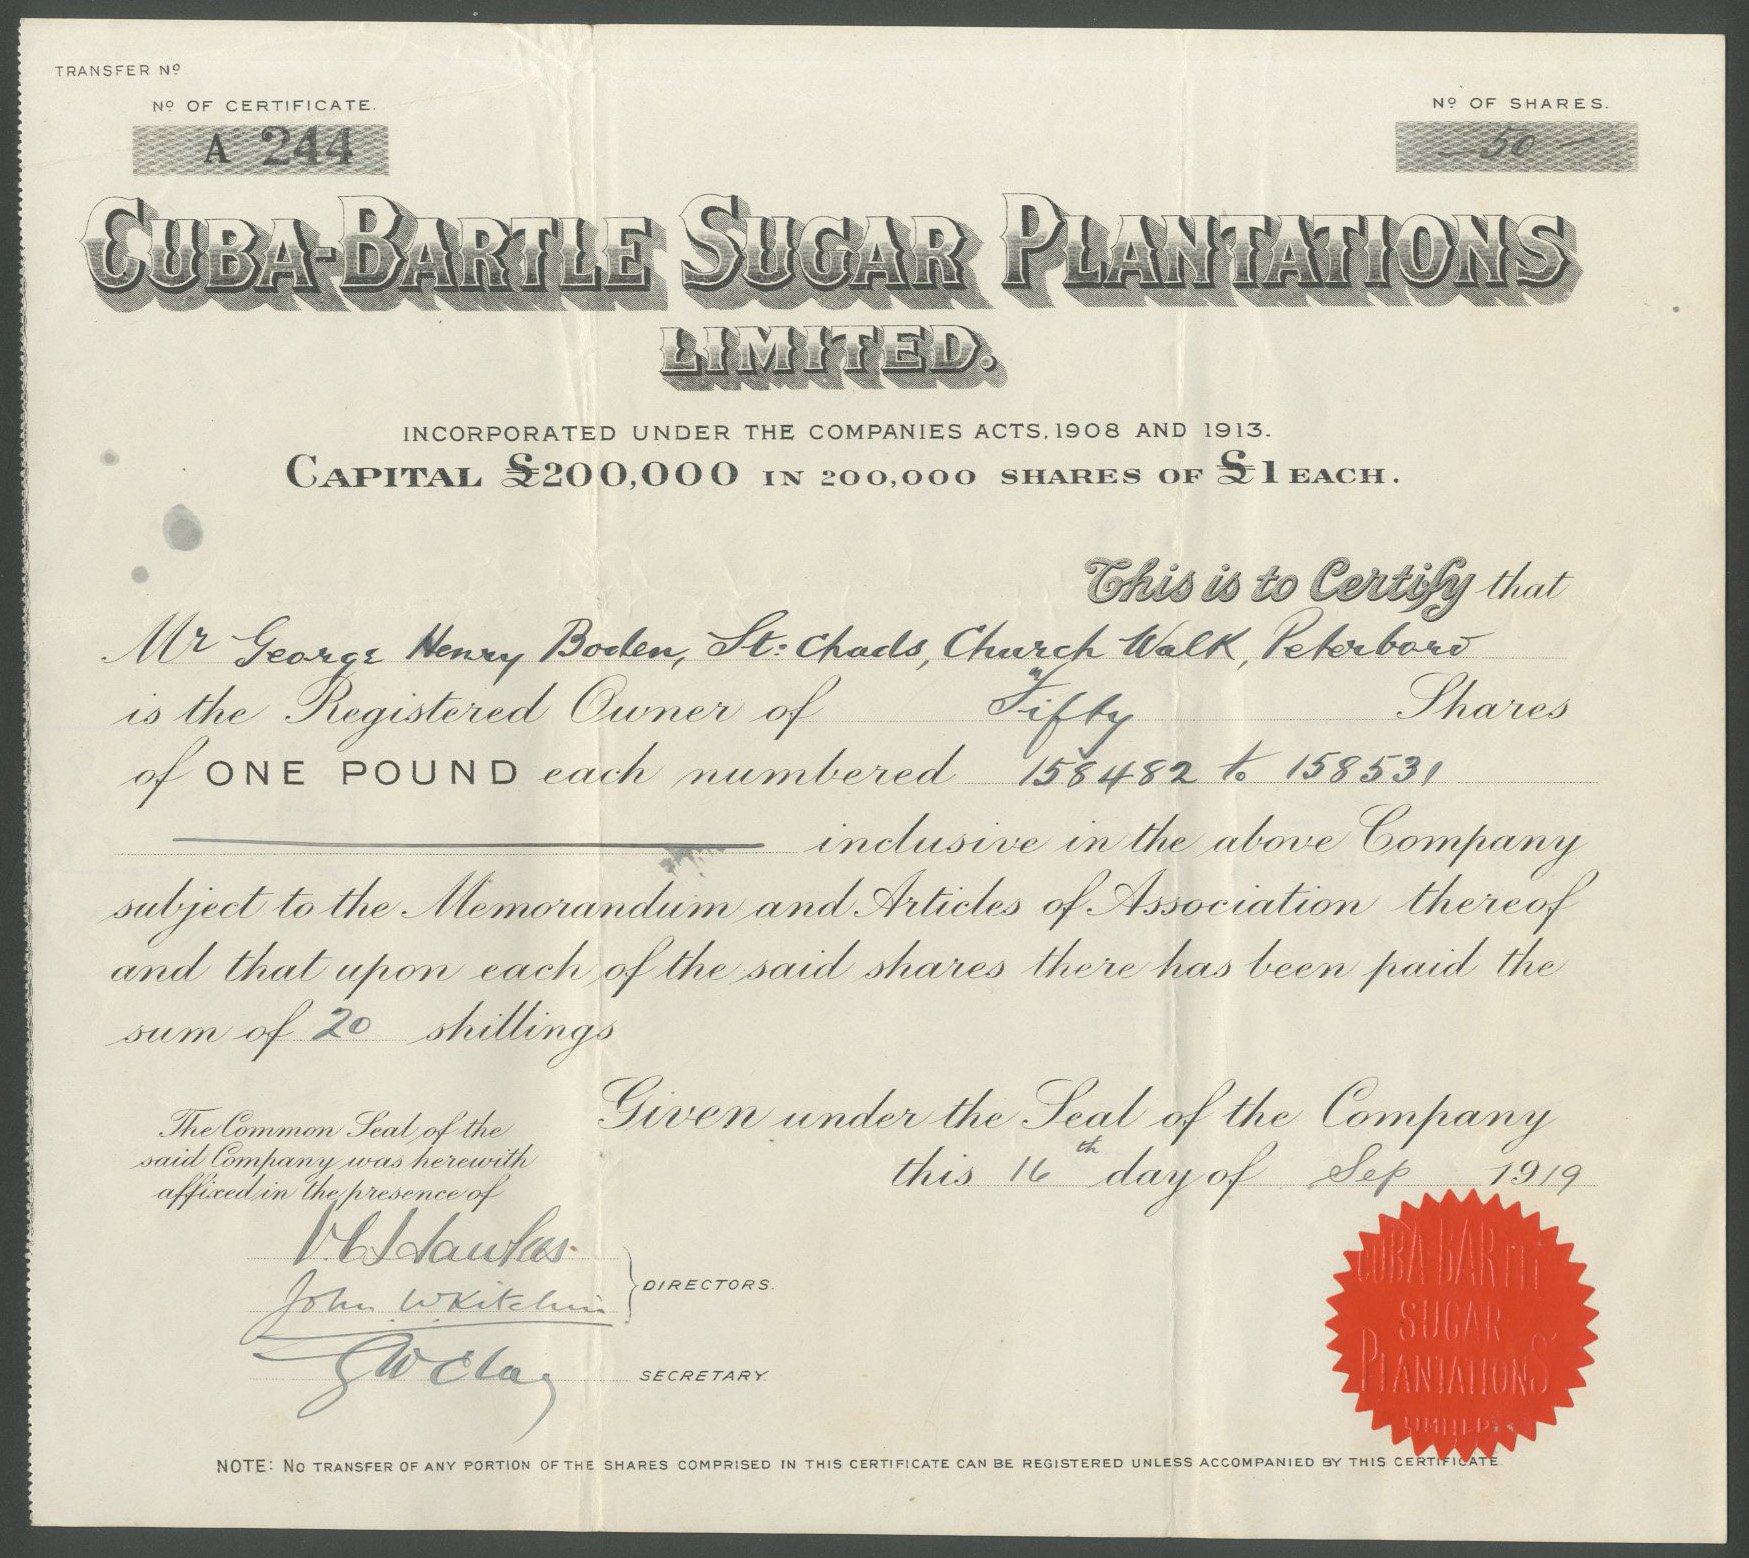 TRANSFER Nº
Nº OF CERTIFICATE.
A 244
Nº OF SHARES.
50
CUBA-BARTLE SUGAR PLANTATIONS
LIMITED.
INCORPORATED UNDER THE COMPANIES ACTS, 1908 AND 1913.
CAPITAL £200,000 IN 200,000 SHARES OF £1 EACH.
This is to Certify that
Mr George Henry Boden, St: Chads, Church Walk, Peterboro
is the Registered Owner of Fifty Shares
of ONE POUND each numbered 158482 to 158531
inclusive in the above Company
subject to the Memorandum and Articles of Association thereof
and that upon each of the said shares there has been paid the
sum of 20 shillings
Given under the Seal of the Company
this 16th day of Sep 1919
The Common Seal of the
said Company was herewith
affixed in the presence of
John W Kitchin
DIRECTORS.
SECRETARY.
CUBA BARTLE
SUGAR
PLANTATIONS
LIMITED
NOTE: NO TRANSFER OF ANY PORTION OF THE SHARES COMPRISED IN THIS CERTIFICATE CAN BE REGISTERED UNLESS ACCOMPANIED BY THIS CERTIFICATE.